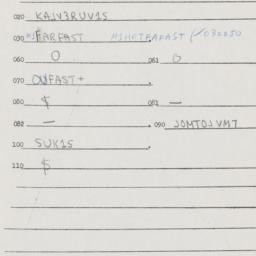 020 KAJV3RUV15
030 FARFAST
060 0 061 0
070 OUFAST+
080 $ 081 —
082 — . 090 JOMTOJVM7
100 SUK15 .
110 $